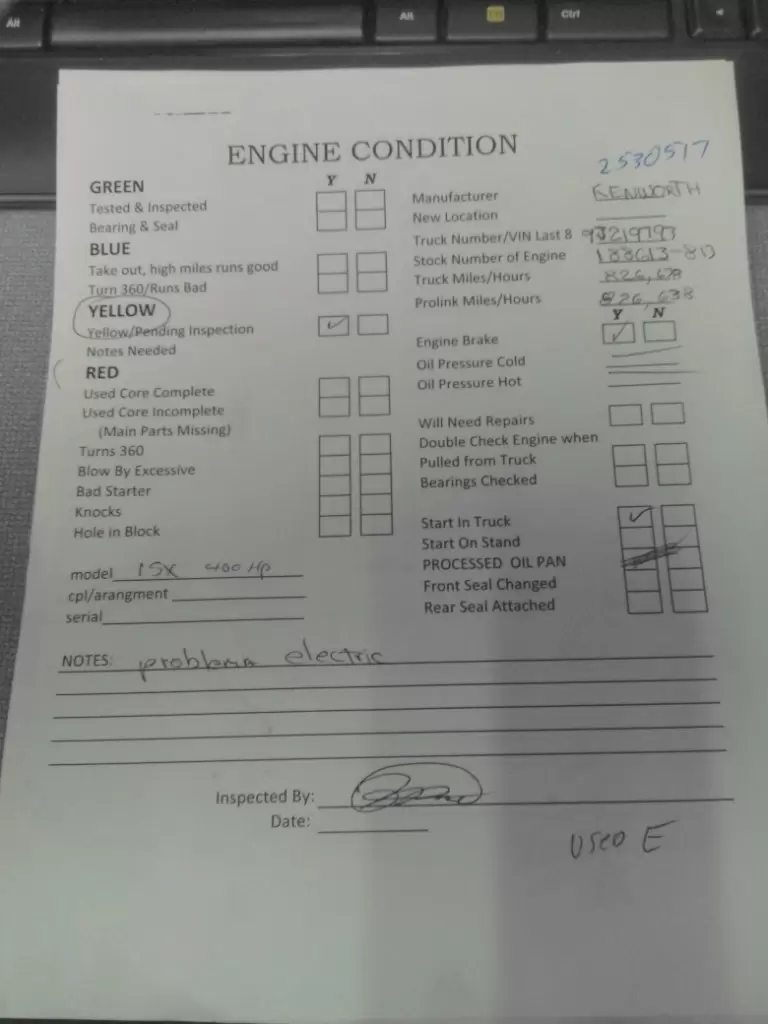 Alt
Alt
Ctrl
ENGINE CONDITION
2530517
GREEN Y N
Tested & Inspected
Bearing & Seal
BLUE
Take out, high miles runs good
Turn 360/Runs Bad
YELLOW
Yellow/Pending Inspection ✓
Notes Needed
RED
Used Core Complete
Used Core Incomplete
(Main Parts Missing)
Turns 360
Blow By Excessive
Bad Starter
Knocks
Hole in Block
model ISX 400 HP
cpl/arangment
serial
Manufacturer KENWORTH
New Location
Truck Number/VIN Last 8
Stock Number of Engine
Truck Miles/Hours
Prolink Miles/Hours 826,638
Y N
Engine Brake ✓
Oil Pressure Cold
Oil Pressure Hot
Will Need Repairs
Double Check Engine when
Pulled from Truck
Bearings Checked
Start In Truck ✓
Start On Stand
PROCESSED OIL PAN
Front Seal Changed
Rear Seal Attached
NOTES: problema electric
Inspected By:
Date:
USED E